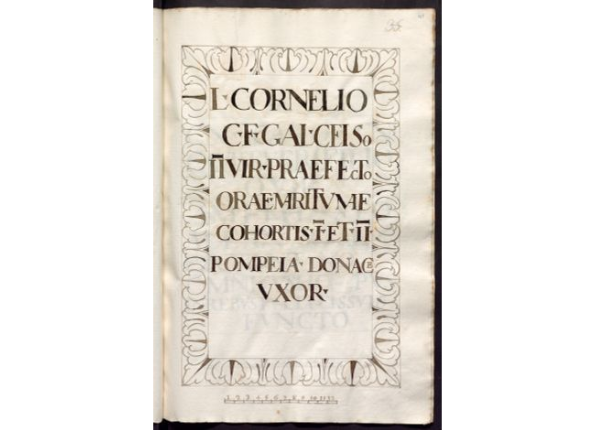 95
L·CORNELIO
C·F·GAL·CELSo
II̅VIR·PRAEFEcTo
ORAE·MARITVMAE
COHORTIS·I̅·ET·II̅
POMPEIA·DONACE
VXOR·
FVNCTO